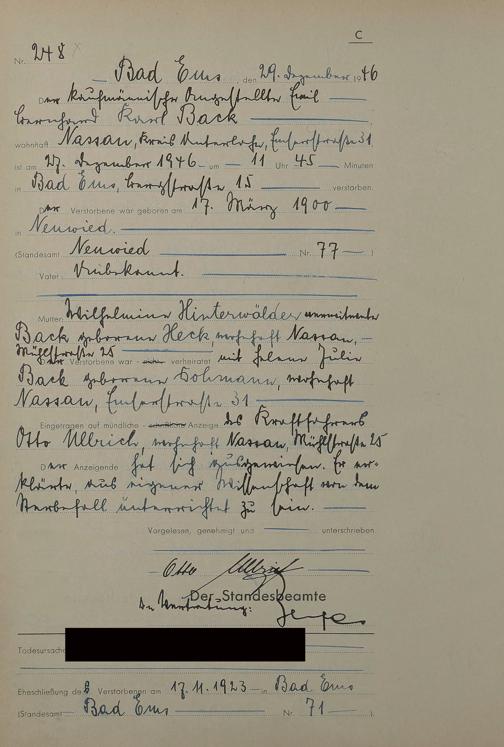 C
Nr. 248
Bad Ems, den 29. Dezember 1946
Der kaufmännische Angestellte Emil
Bernhard Karl Back
wohnhaft Nassau, Kreis Unterlahn, Emserstraße 31
ist am 27. Dezember 1946 um 11 Uhr 45 Minuten
in Bad Ems, Bergstraße 15 verstorben.
Der Verstorbene war geboren am 17. März 1900
in Neuwied.
(Standesamt Neuwied Nr. 77)
Vater: Unbekannt.
Mutter: Wilhelmine Hinterwälder verwitwete
Back geborene Heck, wohnhaft Nassau,
Mühlstraße 25
Der Verstorbene war nicht verheiratet mit Helene Julie
Back geborene Dohmann, wohnhaft
Nassau, Emserstraße 31
Eingetragen auf mündliche schriftliche Anzeige des Kraftfahrers
Otto Ullrich, wohnhaft Nassau, Mühlstraße 25
Der Anzeigende hat sich ausgewiesen. Er er-
klärte, aus eigener Wissenschaft von dem
Sterbefall unterrichtet zu sein.
Vorgelesen, genehmigt und unterschrieben
Otto Ullrich
Der Standesbeamte
In Vertretung:
Todesursache
Eheschließung des Verstorbenen am 17.11.1923 in Bad Ems
(Standesamt Bad Ems Nr. 71)